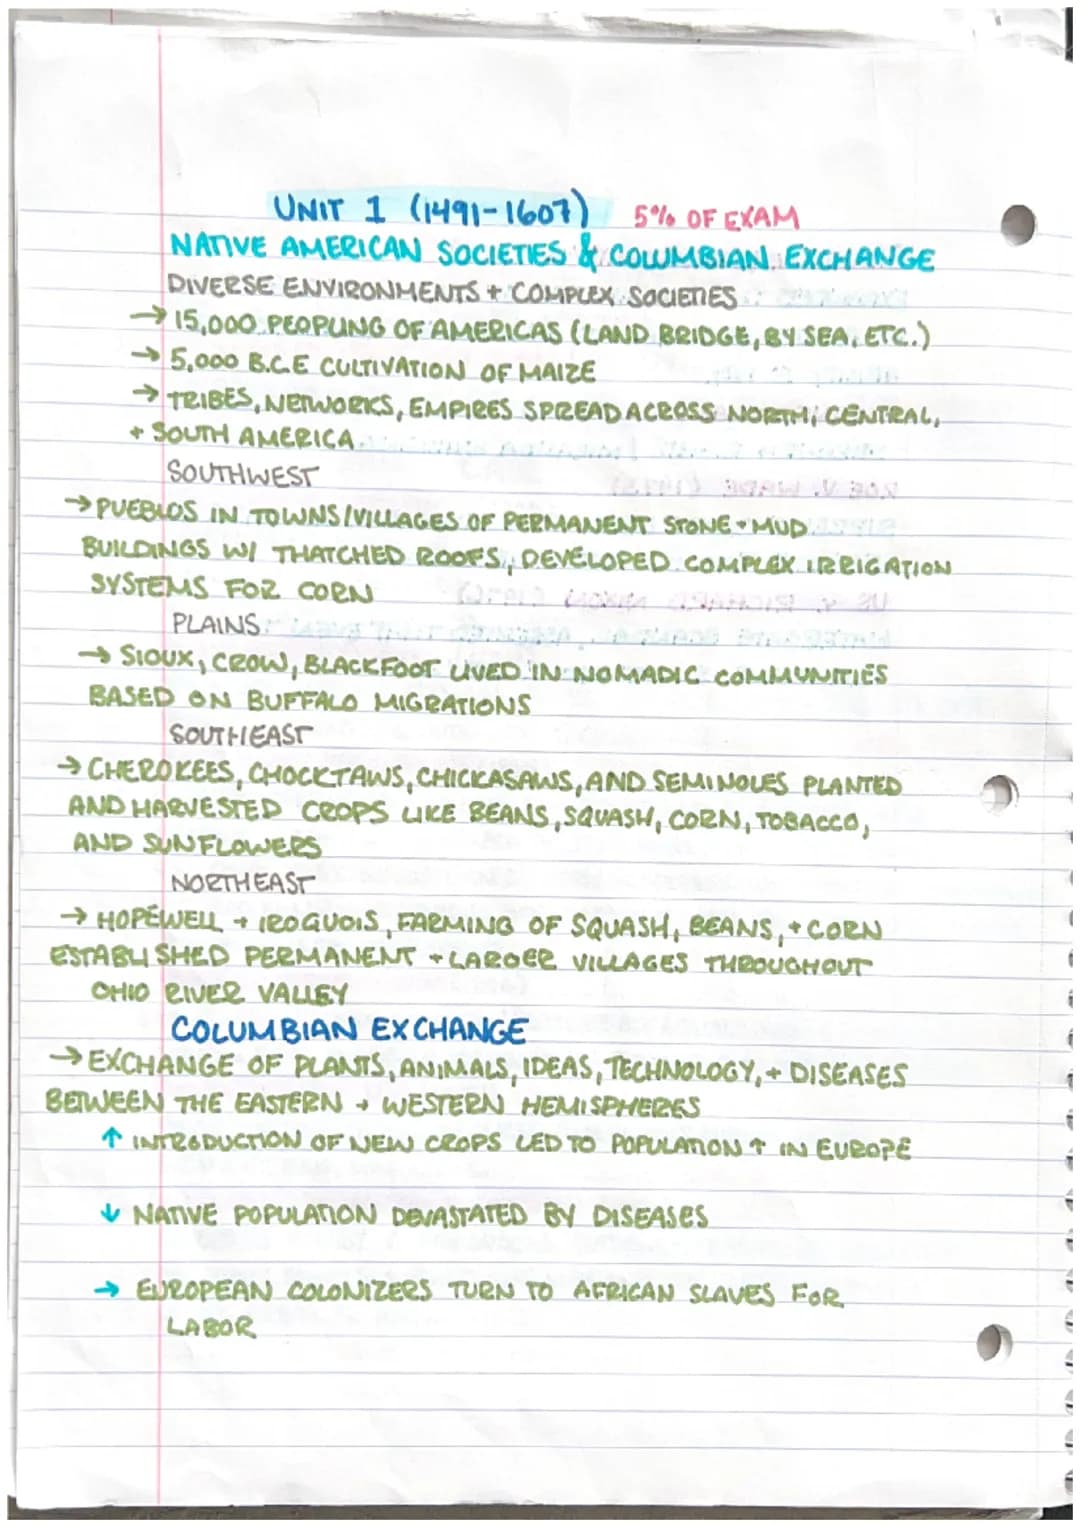 UNIT 1 (1491-1607) 5% OF EXAM
NATIVE AMERICAN SOCIETIES & COLUMBIAN EXCHANGE
DIVERSE ENVIRONMENTS + COMPLEX SOCIETIES
→ 15,000 PEOPLING OF AMERICAS (LAND BRIDGE, BY SEA, ETC.)
→ 5,000 B.C.E CULTIVATION OF MAIZE
→ TRIBES, NETWORKS, EMPIRES SPREAD ACROSS NORTH, CENTRAL,
+ SOUTH AMERICA
SOUTHWEST
→ PUEBLOS IN TOWNS/VILLAGES OF PERMANENT STONE + MUD
BUILDINGS W/ THATCHED ROOFS, DEVELOPED COMPLEX IRRIGATION
SYSTEMS FOR CORN
PLAINS
→ SIOUX, CROW, BLACKFOOT LIVED IN NOMADIC COMMUNITIES
BASED ON BUFFALO MIGRATIONS
SOUTHEAST
→ CHEROKEES, CHOCKTAWS, CHICKASAWS, AND SEMINOLES PLANTED
AND HARVESTED CROPS LIKE BEANS, SQUASH, CORN, TOBACCO,
AND SUNFLOWERS
NORTHEAST
→ HOPEWELL + IROQUOIS, FARMING OF SQUASH, BEANS, + CORN
ESTABLISHED PERMANENT + LARGER VILLAGES THROUGHOUT
OHIO RIVER VALLEY
COLUMBIAN EXCHANGE
→ EXCHANGE OF PLANTS, ANIMALS, IDEAS, TECHNOLOGY, + DISEASES
BETWEEN THE EASTERN + WESTERN HEMISPHERES
↑ INTRODUCTION OF NEW CROPS LED TO POPULATION ↑ IN EUROPE
↓ NATIVE POPULATION DEVASTATED BY DISEASES
→ EUROPEAN COLONIZERS TURN TO AFRICAN SLAVES FOR
LABOR